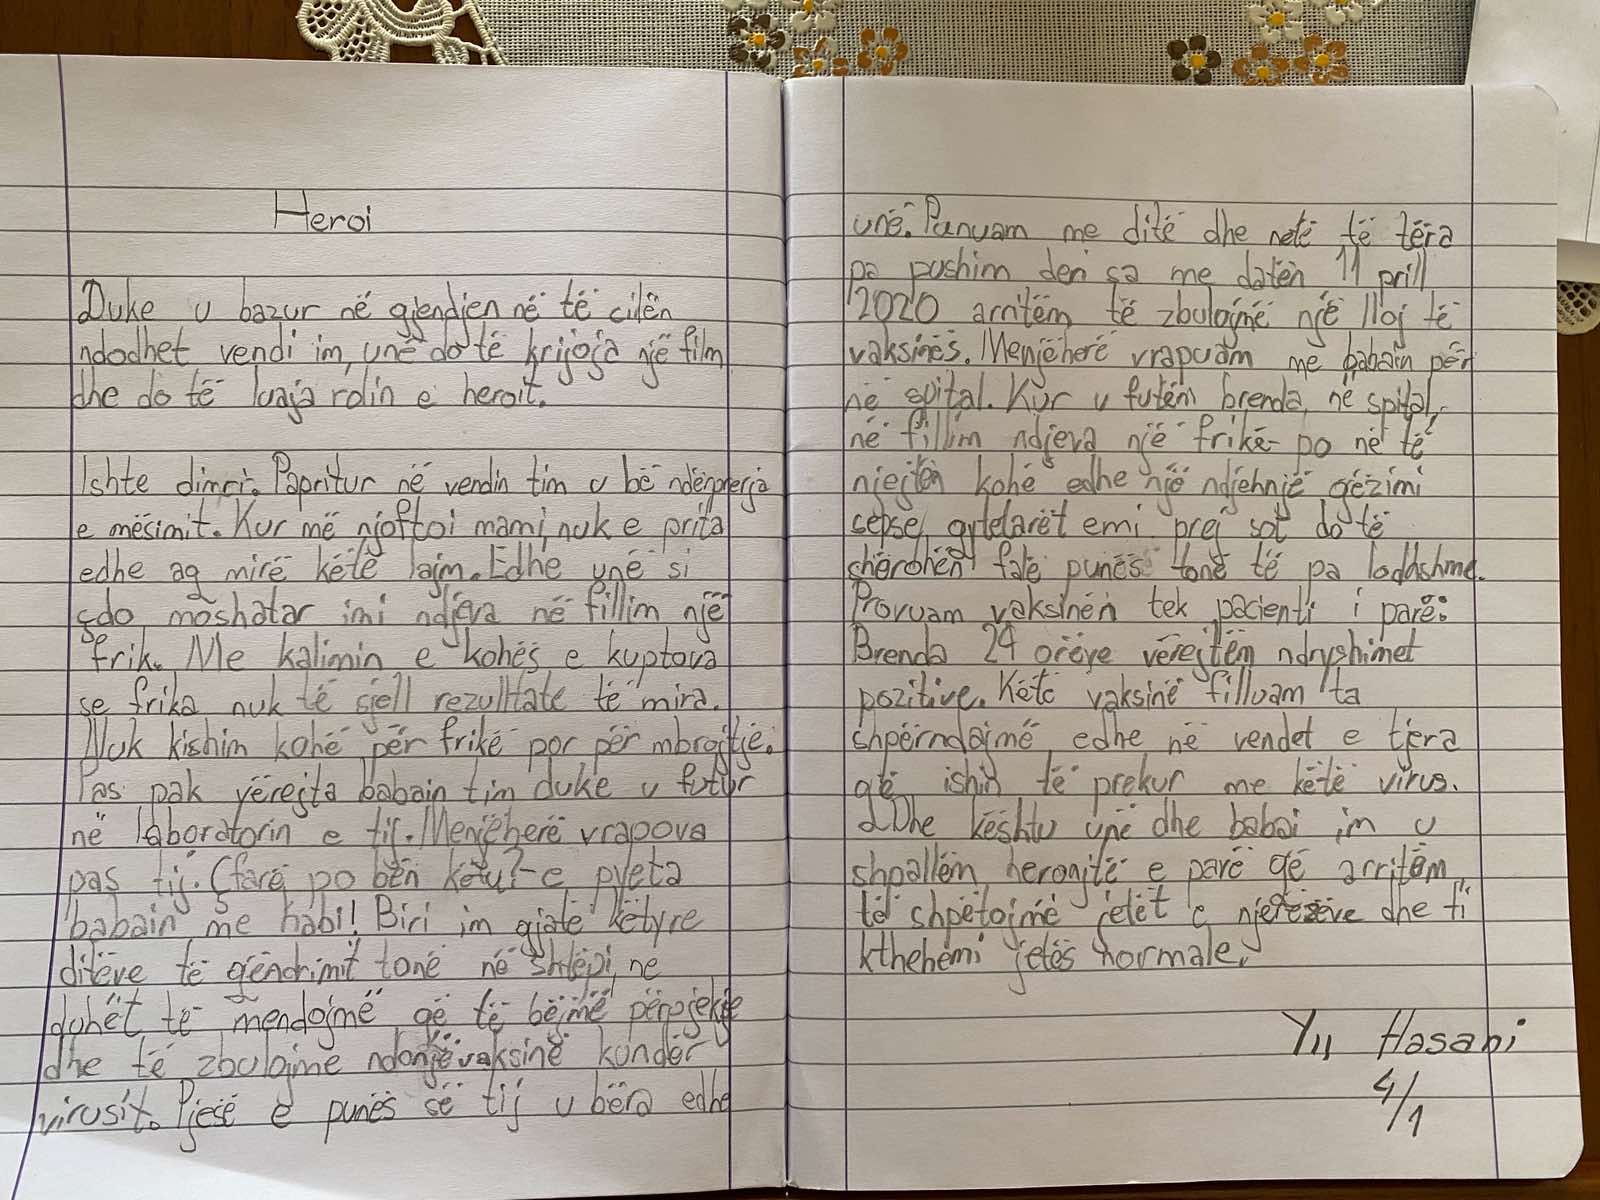 Heroi
Duke u bazur në gjendjen në të cilën
ndodhet vendi im, unë do të krijoja një film
dhe do të luaja rolin e heroit.
Ishte dimri. Papritur në vendin tim u bë ndërprerja
e mësimit. Kur më njoftoi mami, nuk e prita
edhe aq mirë këtë lajm. Edhe unë si
çdo moshatar imi ndjeva në fillim një
frik. Me kalimin e kohës e kuptova
se frika nuk të sjell rezulltate të mira.
Nuk kishim kohë për frikë por për mbrojtje.
Pas pak vërejta babain tim duke u futur
në laboratorin e tij. Menjëherë vrapova
pas tij. Çfarë po bën këtu?-e pyeta
babain me habi! Biri im gjatë këtyre
ditëve të qëndrimit tonë në shtëpi, ne
duhët të mendojmë që të bëjmë përpjekje
dhe të zbulojme ndonjëvaksinë kundër
virusit. Pjesë e punës së tij u bëra edhe
unë. Punuam me ditë dhe netë të tëra
pa pushim deri sa me datën 11 prill
2020 arritëm të zbulojmë një lloj të
vaksinës. Menjëherë vrapuam me babain për
në spital. Kur u futëm brenda, në spital,
në fillim ndjeva një frikë- po në të
njejtën kohë edhe një ndjehnjë gëzimi
sepse, qytetarët emi prej sot do të
shërohën falë punës tonë të pa lodhshme.
Provuam vaksinën tek pacienti i parë.
Brenda 24 orëve vërejtëm ndryshimet
pozitive. Këtë vaksinë filluam ta
shpërndajmë edhe në vendet e tjera
që ishin të prekur me këtë virus.
Dhe kështu unë dhe babai im u
shpallëm heronjtë e parë që arritëm
të shpëtojmë jetët e njerëzëve dhe ti
kthehemi jetës normale.
Yll Hasani
4/1